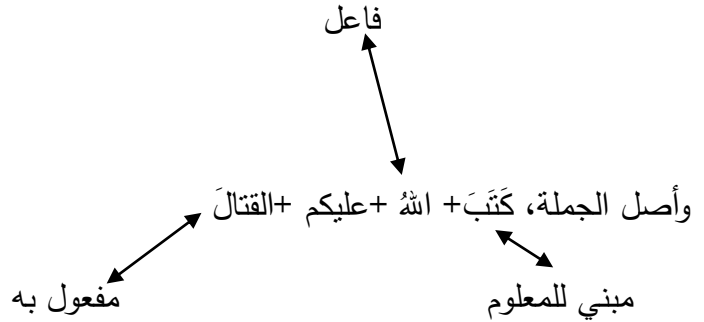 فاعل
وأصل الجملة، كَتَبَ+ اللهُ +عليكم +القتالَ
مبني للمعلوم
مفعول به